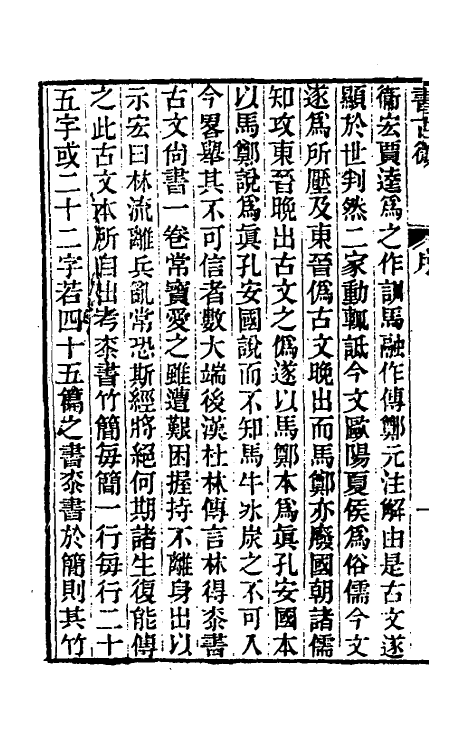 書古微　序　一
衞宏賈逵爲之作訓馬融作傳鄭元注解由是古文遂
顯於世判然二家動輒詆今文歐陽夏侯爲俗儒今文
遂爲所壓及東晉僞古文晚出而馬鄭亦廢國朝諸儒
知攻東晉晚出古文之僞遂以馬鄭本爲眞孔安國本
以馬鄭說爲眞孔安國說而不知馬牛氷炭之不可入
今畧舉其不可信者數大端後漢杜林傳言林得桼書
古文尙書一卷常寶愛之雖遭艱困握持不離身出以
示宏曰林流離兵亂常恐斯經將絕何期諸生復能傳
之此古文本所自出考桼書竹簡每簡一行每行二十
五字或二十二字若四十五篇之書桼書於簡則其竹